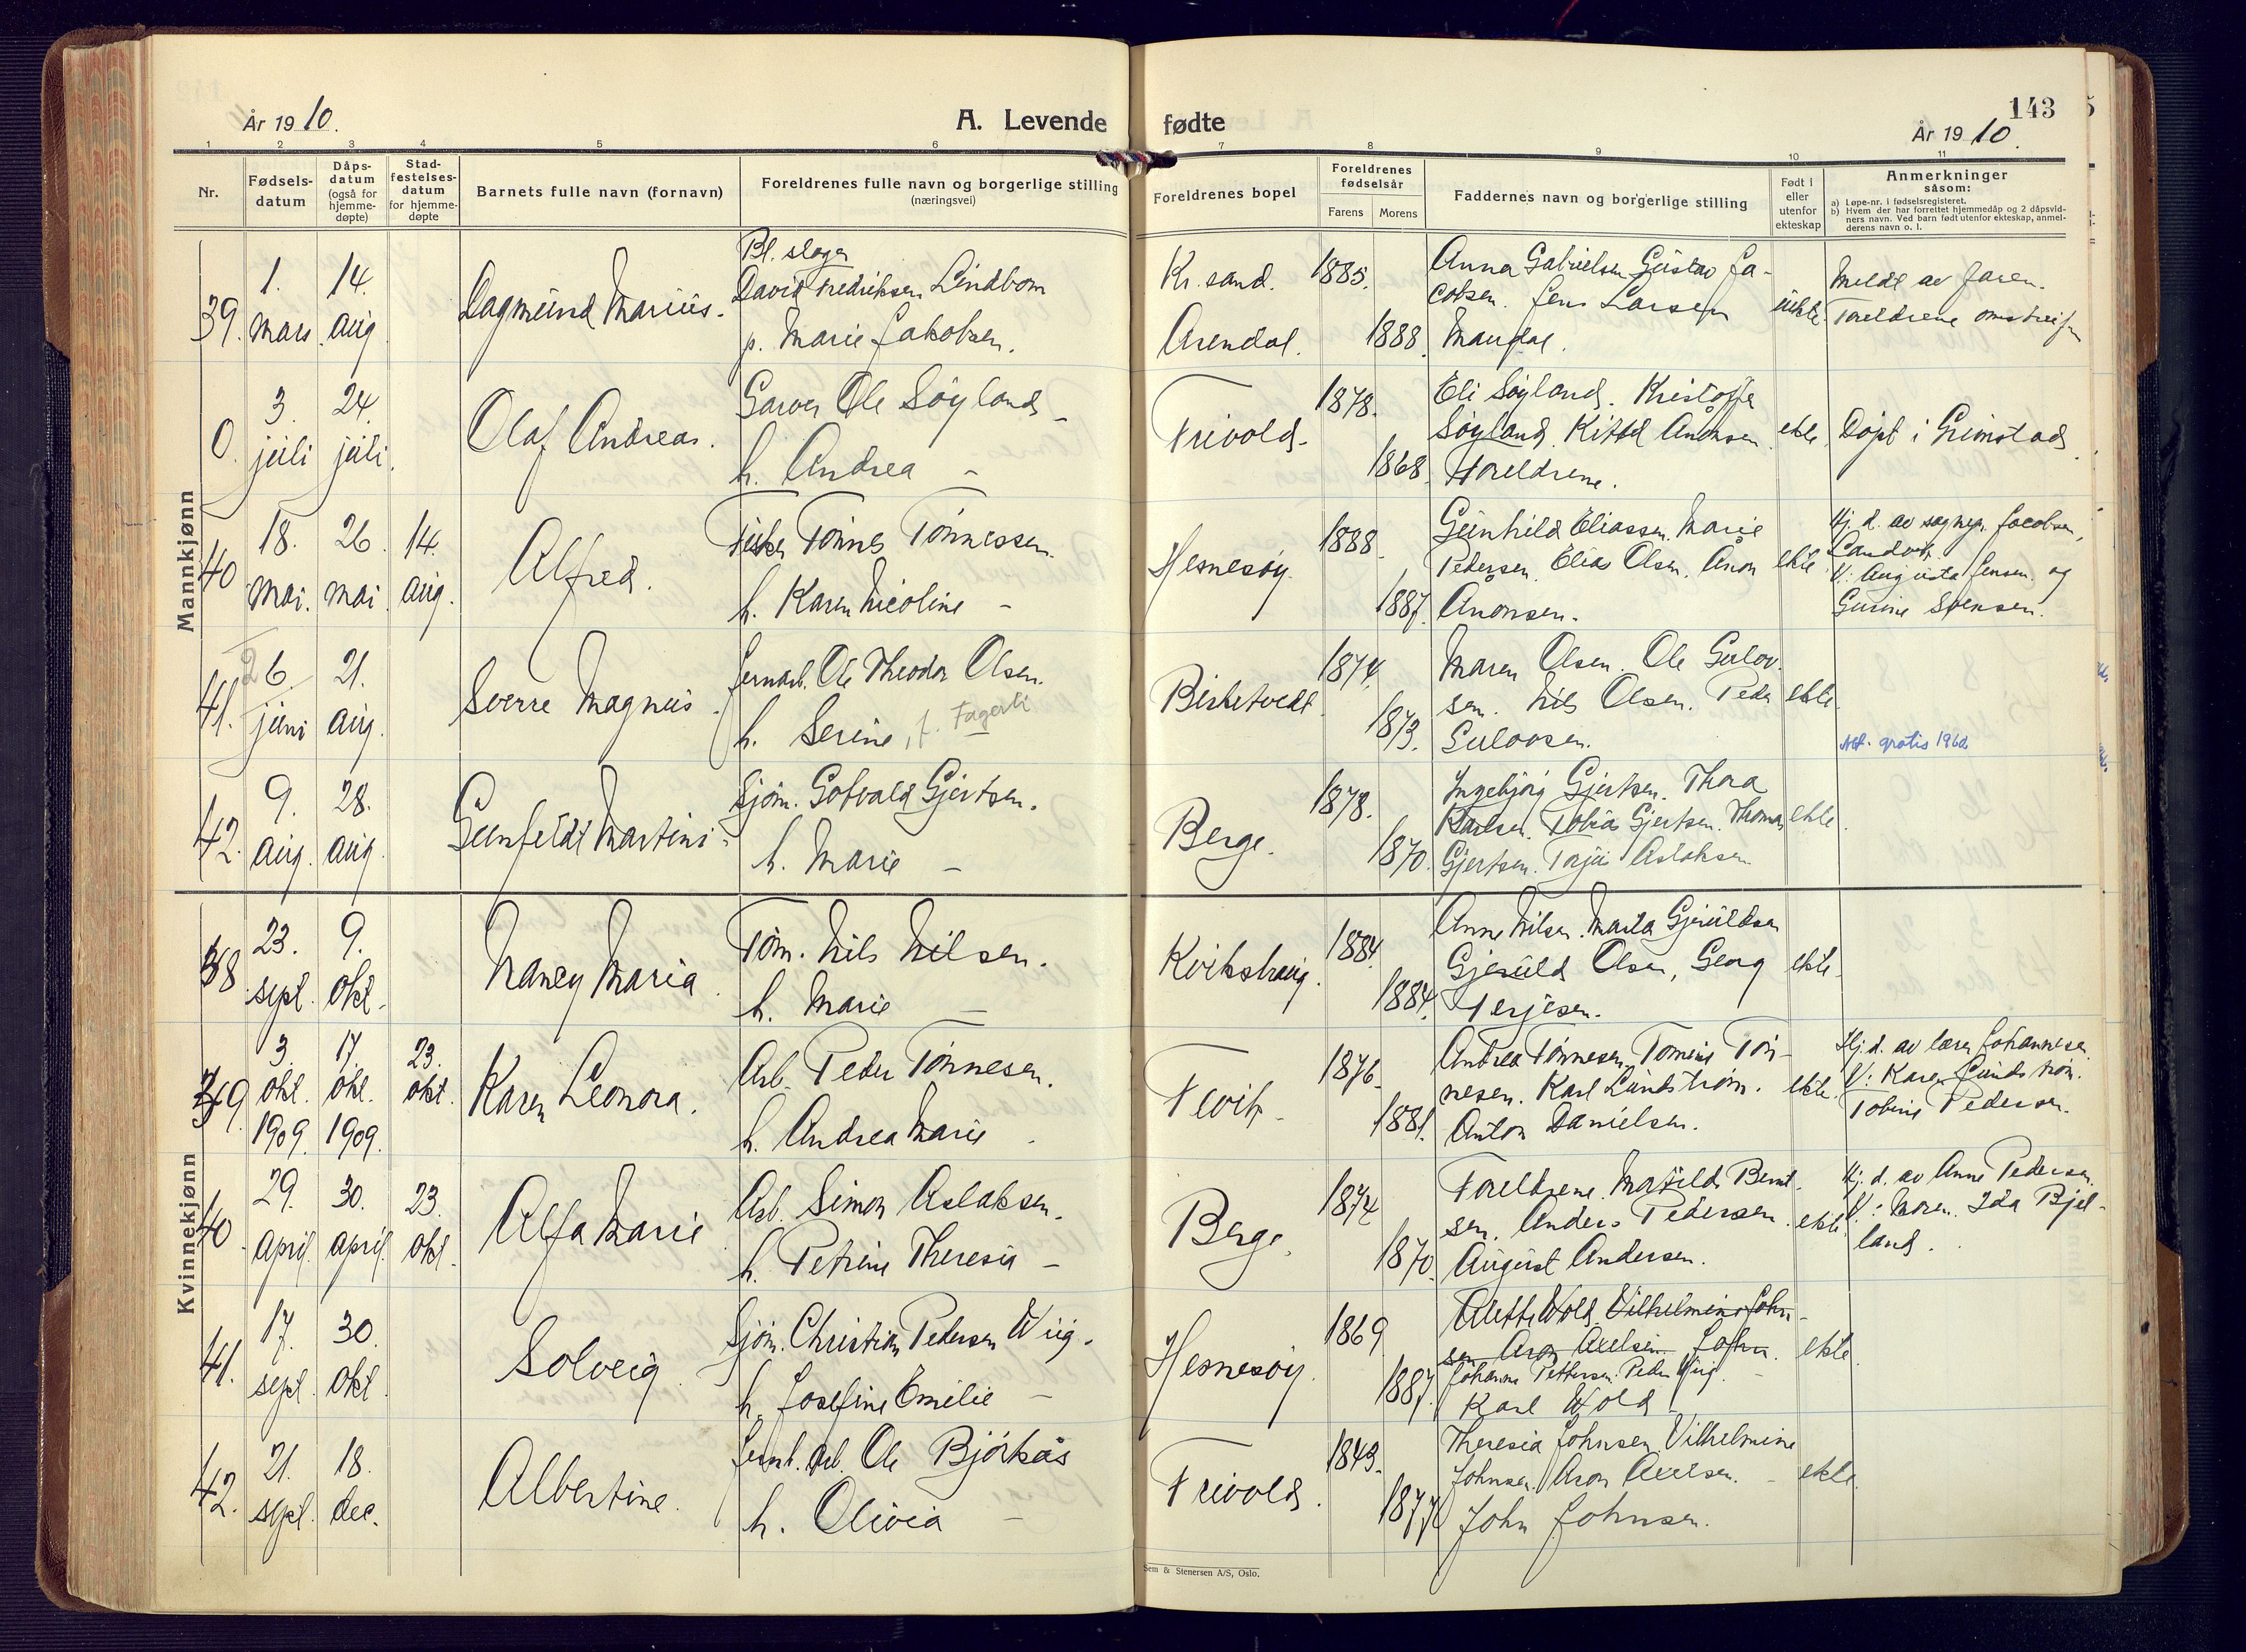 År 1910.
A. Levende
fødte
143
År 1910.
1 2 3 4 5 6 7 8 9 10 11
Nr.
Fødsels-
datum
Dåps-
datum
(også for
hjemme-
døpte)
Stad-
festelses-
datum
for hjemme-
døpte
Barnets fulle navn (fornavn)
Foreldrenes fulle navn og borgerlige stilling
(næringsvei)
Foreldrenes bopel
Foreldrenes
fødselsår
Farens Morens
Faddernes navn og borgerlige stilling
Født i
eller
utenfor
ekteskap
Anmerkninger
såsom:
a) Løpe-nr. i fødselsregisteret.
b) Hvem der har forrettet hjemmedåp og 2 dåpsvid-
ners navn. Ved barn født utenfor ekteskap, anmel-
derens navn o. l.
Mannkjønn
39.
1.
mars
14.
aug
Dagmund Marius.
Bl. slager
David Fredriksen Lindbom
p. Marie Jakobsen.
Kr. sand.
Arendal.
1885.
1888.
Anna Gabrielsen Gustav Ja-
cobsen. Jens Larsen
Mandal.
uekte.
Meldt av faren.
Foreldrene
0.
3
juli
24.
juli.
Olaf Andreas.
Garver Ole Søyland -
h. Andrea -
Frivold -
1878.
1868
Eli Søyland. Kristoffer
Søyland. Kittel Anonsen
Foreldrene.
ekte.
Døpt i Grimstad.
40
18.
mai.
26.
mai
14.
aug.
Alfred.
Fisker Tønnes Tønnessen.
h. Karen Nicoline -
Hesnesøy.
1888.
1887.
Gunhild Eliassen. Marie
Pedersen. Elias Olsen. Anon
Anonsen.
ekte
Hj. d. av sognepr. Jacobsen,
Landvik.
V: Augusta Jensen og
Gurine Svensen.
41.
26.
juni
21.
aug.
Sverre Magnus.
Jernarb. Ole Theodor Olsen.
h. Serine, f. Fagerli
Birketvedt
1874.
1873.
Maren Olsen. Ole Gulov-
sen. Nils Olsen. Peder
Gulovsen.
ekte.
Att. gratis 1960
42.
9.
aug.
28.
aug.
Gunfeldt Martins.
Sjøm. Gotvald Gjertsen.
h. Marie -
Berge.
1878.
1870.
Ingebjørg Gjertsen. Thora
Karlsen. Tobias Gjertsen. Thomas
Gjertsen. Terju Aslaksen
ekte.
Kvinnekjønn
38
23.
sept.
9.
okt.
Nancy Maria.
Tøm. Nils Nilsen.
h. Marie -
1884.
1884.
Anne Nilsen. Marta Gjeruldsen
Gjeruld Olsen, Georg
Terjesen.
ekte.
39.
3.
okt.
1909.
17.
okt.
1909.
23.
okt.
Karen Leonora.
Arb. Peder Tønnesen.
h. Andrea Marie.
Fevik -
1876.
1881.
Andrea Tønnesen, Tomine Tøn-
nesen. Karl Lundstrøm.
Anton Danielsen.
ekte.
Hj. d. av lærer Johannesen.
V: Karen Lundstrøm.
Tobine Pedersen.
40.
29.
april.
30.
april
23.
okt.
Alfa Marie
Arb. Simon Aslaksen.
h. Petrine Theresia -
Berge.
1874
1870.
Foreldrene. Matilde Bernt-
sen. Anders Pedersen.
August Andersen.
ekte.
Hj. d. av Anne Pedersen.
V: Maren. Ida Bjel-
land.
41.
17.
sept.
30.
okt.
Solveig.
Sjøm. Christian Pedersen Wiig.
h. Josefine Emilie -
Hesnesøy.
1869
1887.
Alette Wold. Vilhelmine John-
sen Aron Axelsen. John.
Johanne Pettersen. Peder Wiig. -
Karl Wold
ekte.
42.
21.
sept.
18.
dec.
Albertine.
Jernb. arb. Ole Bjørkås
h. Olivia -
Frivold.
1843.
1877
Theresia Johnsen. Vilhelmine
Johnsen. Aron Axelsen. -
John Johnsen.
ekte.
Sem & Stenersen A/S, Oslo.